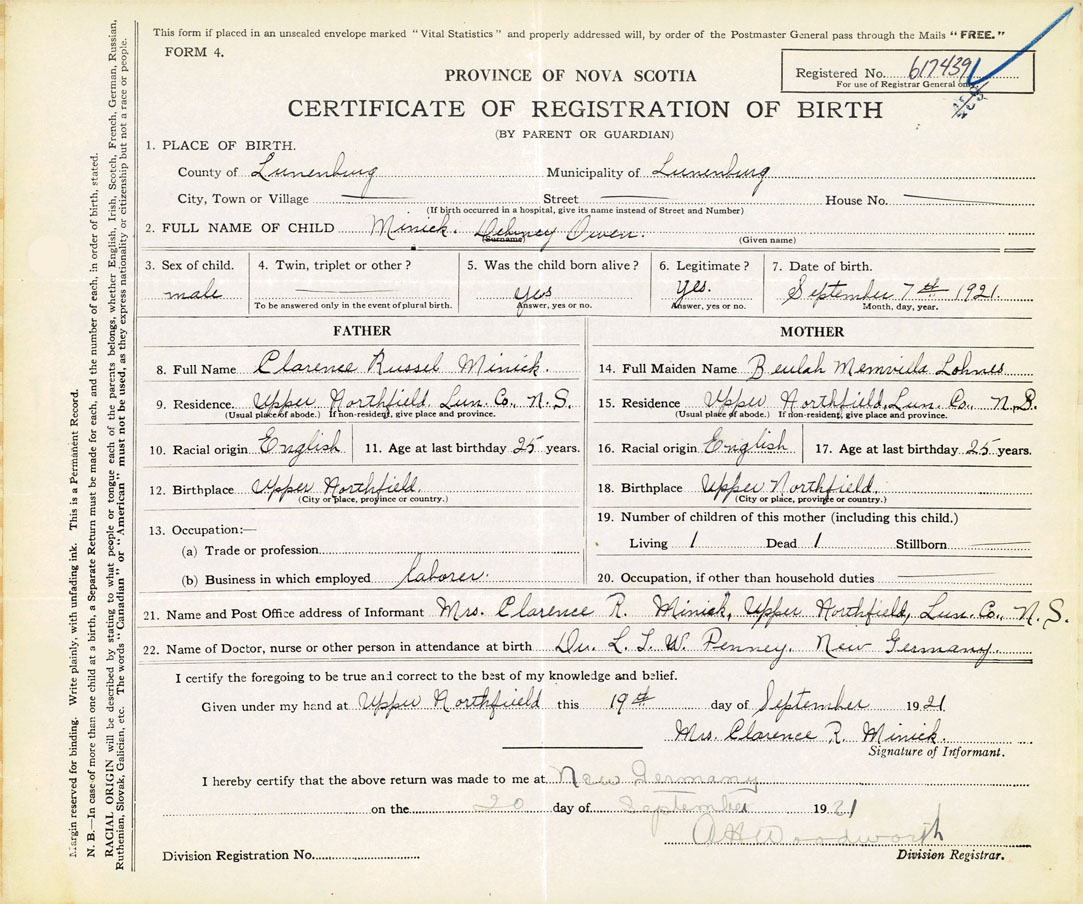 This form if placed in an unsealed envelope marked "Vital Statistics" and properly addressed will, by order of the Postmaster General pass through the Mails "FREE."
FORM 4.
Registered No. 617439
For use of Registrar General only
PROVINCE OF NOVA SCOTIA
CERTIFICATE OF REGISTRATION OF BIRTH
(BY PARENT OR GUARDIAN)
1. PLACE OF BIRTH.
County of Lunenburg Municipality of Lunenburg
City, Town or Village Street House No.
(If birth occurred in a hospital, give its name instead of Street and Number)
2. FULL NAME OF CHILD Minick. Delmey Owen.
(Surname) (Given name)
3. Sex of child. 4. Twin, triplet or other? 5. Was the child born alive? 6. Legitimate? 7. Date of birth.
male yes yes. September 7th 1921.
To be answered only in the event of plural birth. Answer, yes or no. Answer, yes or no. Month, day, year.
FATHER MOTHER
8. Full Name Clarence Russel Minick. 14. Full Maiden Name Beulah Memvilla Lohnes
9. Residence. Upper Northfield, Lun. Co., N.S. 15. Residence Upper Northfield, Lun. Co., N.S.
(Usual place of abode.) If non-resident, give place and province. (Usual place of abode.) If non-resident, give place and province.
10. Racial origin English 11. Age at last birthday 25 years. 16. Racial origin English 17. Age at last birthday 25 years.
12. Birthplace Upper Northfield. 18. Birthplace Upper Northfield.
(City or place, province or country.) (City or place, province or country.)
13. Occupation:— 19. Number of children of this mother (including this child.)
(a) Trade or profession Living 1 Dead 1 Stillborn
(b) Business in which employed laborer. 20. Occupation, if other than household duties
21. Name and Post Office address of Informant Mrs. Clarence R. Minick, Upper Northfield, Lun. Co., N.S.
22. Name of Doctor, nurse or other person in attendance at birth Dr. L. T. W. Penney. New Germany.
I certify the foregoing to be true and correct to the best of my knowledge and belief.
Given under my hand at Upper Northfield this 19th day of September 1921
Mrs. Clarence R. Minick.
Signature of Informant.
I hereby certify that the above return was made to me at New Germany
on the 20 day of September 1921
A H Woodworth
Division Registration No. Division Registrar.
Margin reserved for binding. Write plainly, with unfading ink. This is a Permanent Record.
N. B.—In case of more than one child at a birth, a Separate Return must be made for each, and the number of each, in order of birth, stated.
RACIAL ORIGIN will be described by stating to what people or tongue each of the parents belongs, whether English, Irish, Scotch, French, German, Russian,
Ruthenian, Slovak, Galician, etc. The words "Canadian" or "American" must not be used, as they express nationality or citizenship but not a race or people.